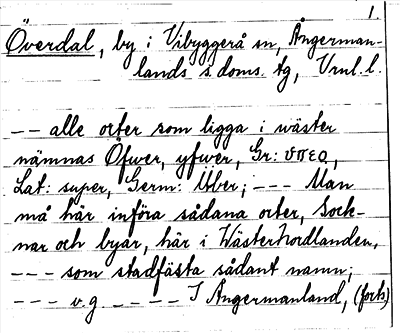 1.
Överdal, by i Vibyggerå sn, Ångerman-
lands s. doms. tg, Vrnl. l.
-- alle orter som ligga i wäster
nämnas Öfwer, yfwer, Gr: υπερ,
Lat: super, Germ: Uber; --- Man
må här införa sådana orter, Sock-
nar och byar, här i WästerNordlanden,
--- som stadfästa sådant namn;
--- v.g ---- I Ångermanland, (forts)